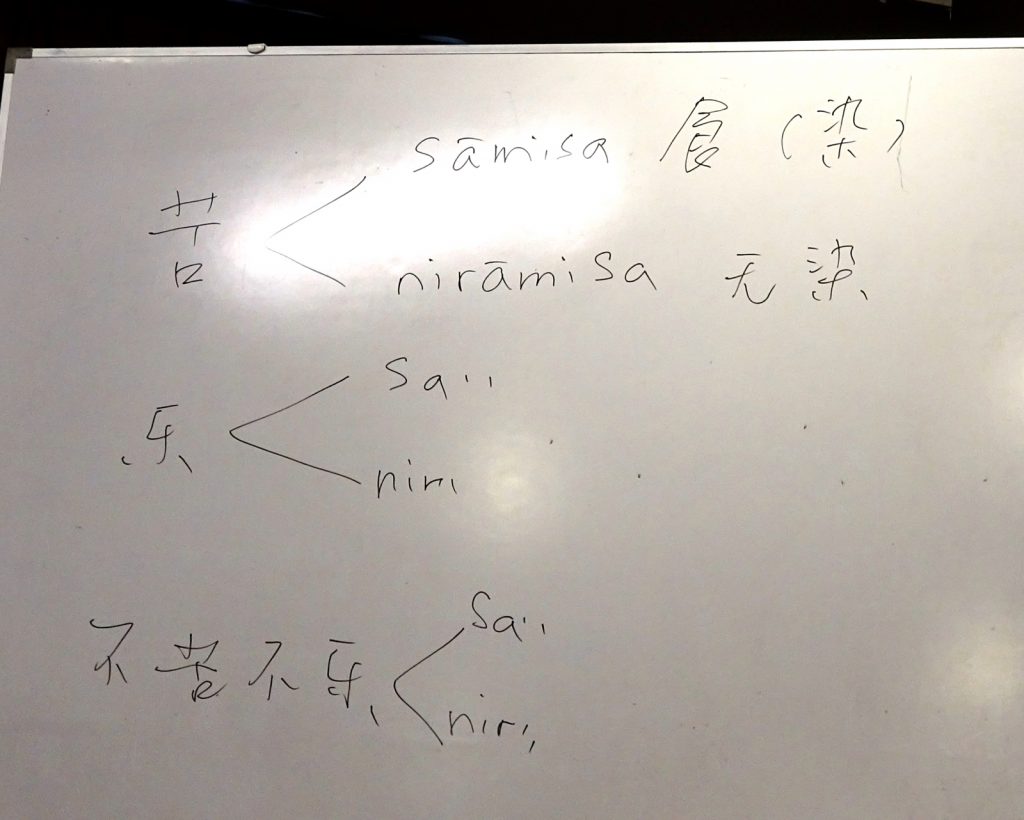 苦 sāmisa 食 (染)
nirāmisa 无染
乐 sa..
nir..
不苦不乐 sa..
nir..